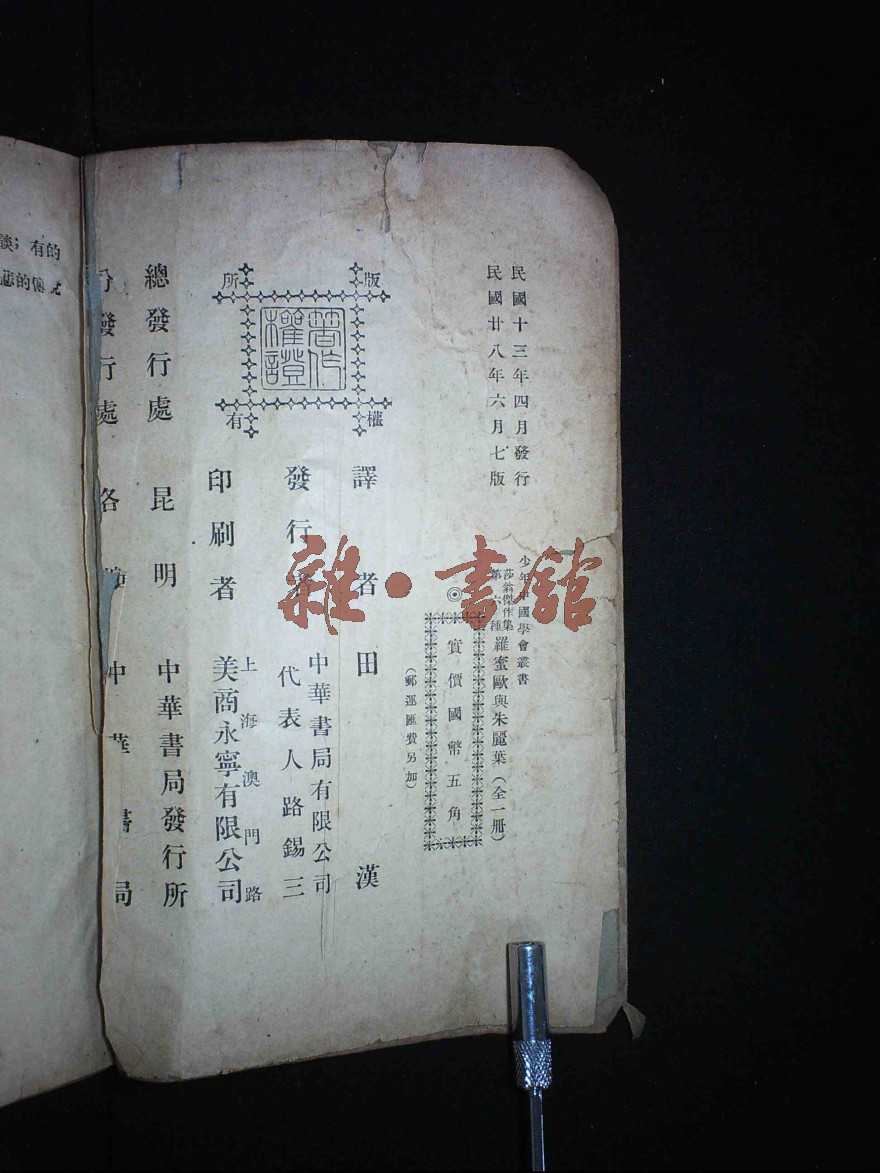 民國十三年四月發行
民國廿八年六月七版
少年中國學會叢書
莎翁傑作集
第六種
羅蜜歐與朱麗葉(全一册)
◎
實價國幣五角
(郵運匯費另加)
版權所有
著作權證
譯者 田漢
發行者 中華書局有限公司
代表人路錫三
印刷者 上海澳門路
美商永寧有限公司
總發行處 昆明 中華書局發行所
分發行處 各埠中華書局
雜·書館
談；有的
惡的